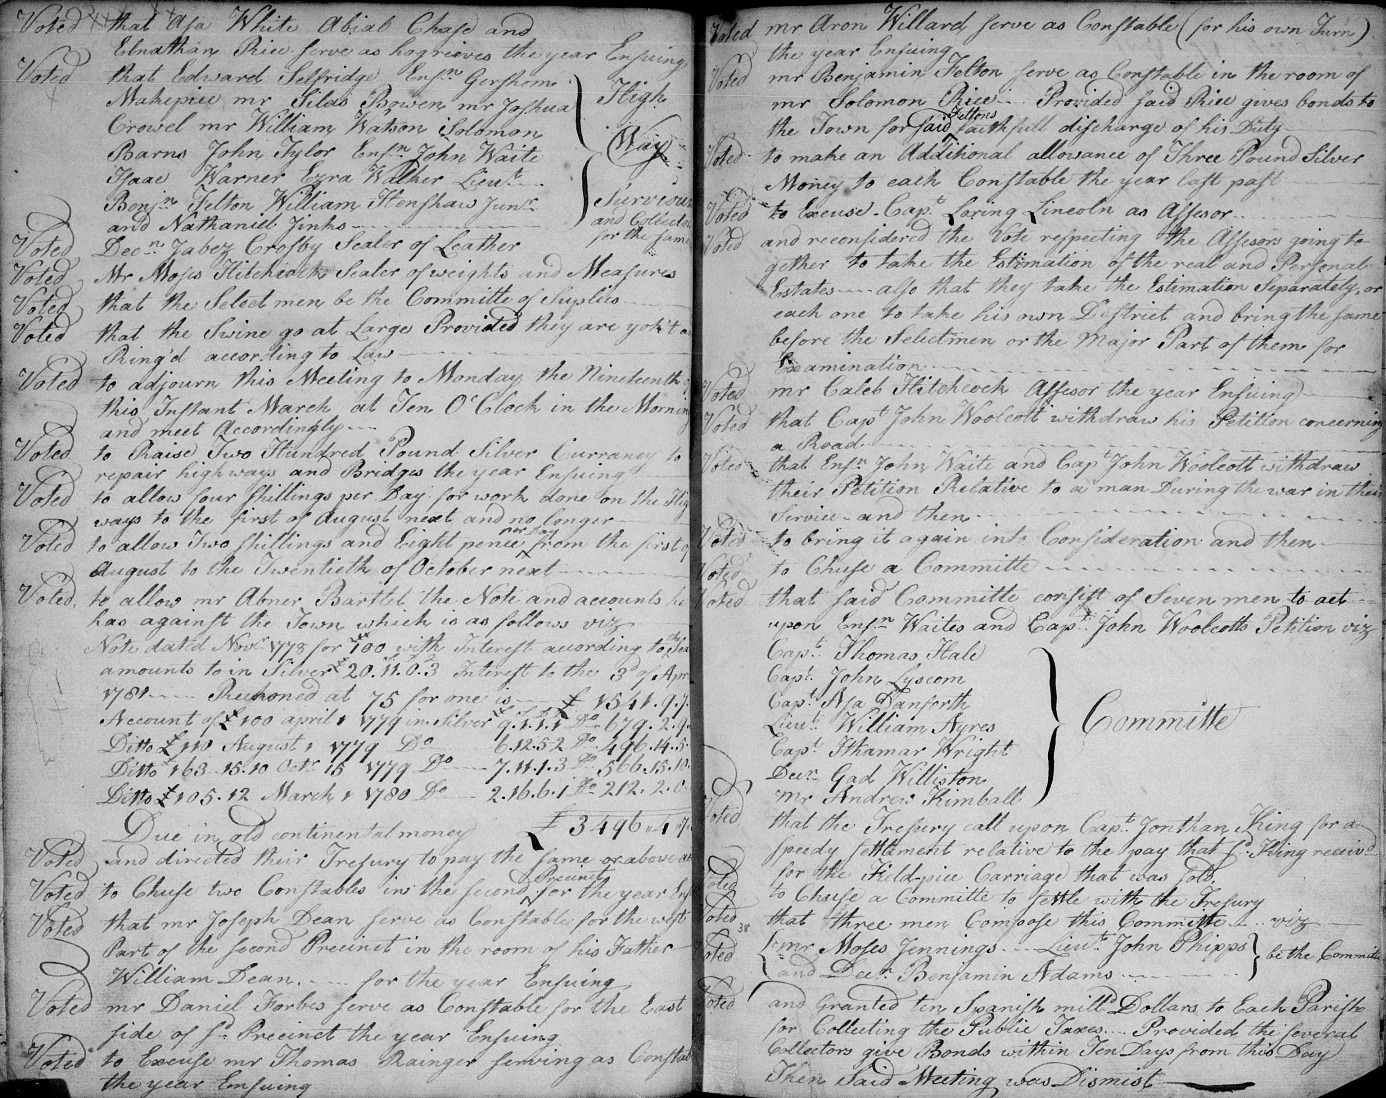 Voted that Asa White Abiab Chase and
Elnathan Rice serve as hogrieves the year Ensuing
Voted that Edward Selfridge Ensn Gershom
Makepiece mr Silas Bowen mr Joshua
Crowel mr William Watson Solomon
Barns John Tylor Ensn John Waite
Isaac Warner Ezra Walker Lieut
Benjn Felton William Henshaw Junr
and Nathaniel Jinks
High
Way
Surviours
and Collectors
for the same
Voted Decn Jabez Crosby Sealer of Leather
Voted Mr Moses Hitchcock Sealer of weights and Measures
Voted that the Select men be the Committe of Suplies
Voted that the Swine go at Large Provided they are yok't a
Ring'd according to Law
Voted to adjourn this Meeting to Monday the Nineteenth of
this Instant March at Ten O'Clock in the Morning
and meet Accordingly
Voted to Raise Two Hundred Pound Silver Currancy to
repair high ways and Bridges the year Ensuing
Voted to allow four shillings per Day for work done on the Hig
ways to the first of August next and no longer
Voted to allow Two shillings and Eight pence per Day from the first of
August to the Twentieth of October next
Voted to allow mr Abner Bartlet the Note and accounts he
has against the Town which is as follows viz
Note dated Novr 1778 for £100 with Interest acording to
amounts to in Silver £20.11.0.3 Interest to the 3d of Apr
1781 Reckoned at 75 for one is £1541.9.7
Account of £100 april 1 1779 in Silver 9.1.1.1 Do 679.2.9
Ditto £110 August 1 1779 Do 6.12.5.2 Do 496.14.5
Ditto 163.15.10 Octr 15 1779 Do 7.11.1.3 Do 566.15.10
Ditto £105.12 March 1 1780 Do 2.16.6.1 Do 212.2.0
Due in old continental money £3496.4.7
Voted and directed their Tresury to pay the same or above
Voted to Chuse two Constables in the second Precinct for the year Ens
Voted that mr Joseph Dean serve as Constable for the west
Part of the second Precinct in the room of his Father
William Dean for the year Ensuing
Voted mr Daniel Forbes serve as Constable for the East
side of sd Precinct the year Ensuing
Voted to Excuse mr Thomas Rainger serving as Constab
the year Ensuing
Voted mr Aron Willard serve as Constable (for his own Turn)
the year Ensuing
Voted mr Benjamin Felton serve as Constable in the room of
mr Solomon Rice Provided said Rice gives bonds to
the Town for said Feltons faithfull discharge of his Duty
Voted to make an Additional allowance of Three Pound Silver
Money to each Constable the year last past
Voted to Excuse Capt Loring Lincoln as Assesor
Voted and reconsidered the Vote respecting the Assesors going to
gether to take the Estimation of the real and Personal
Estates also that they take the Estimation Separately, or
each one to take his own District and bring the same
before the Selectmen or the Major Part of them for
Examination
Voted mr Caleb Hitchcock Assesor the year Ensuing
Voted that Capt John Woolcott withdraw his Petition concerning
a Road
Voted that Ensn John Waite and Capt John Woolcott withdraw
their Petition Relative to a man During the war in their
Service and then
Voted to bring it again into Consideration and then
Voted to Chuse a Committe
Voted that said Committe consist of Seven men to act
upon Ensn Waites and Capt John Woolcotts Petition viz
Capt Thomas Hale
Capt John Lyscom
Capt Asa Danforth
Lieut William Ayres
Capt Ithamar Wright
Decn Gad Williston
mr Andrew Kimball
Committe
Voted that the Tresury call upon Capt Jonthan King for a
speedy settlement relative to the pay that sd King receivd
for the Field-piece Carriage that was sold
Voted to Chuse a Committe to settle with the Tresury
Voted that three men Compose this Committe viz
Voted mr Moses Jennings Lieut John Phipps
and Decn Benjamin Adams
be the Committe
Voted and Granted ten Spanish milld Dollars to Each Parish
for Collecting the Public Taxes Provided the several
Collectors give Bonds within Ten Days from this Day
Then said Meeting was Dismist